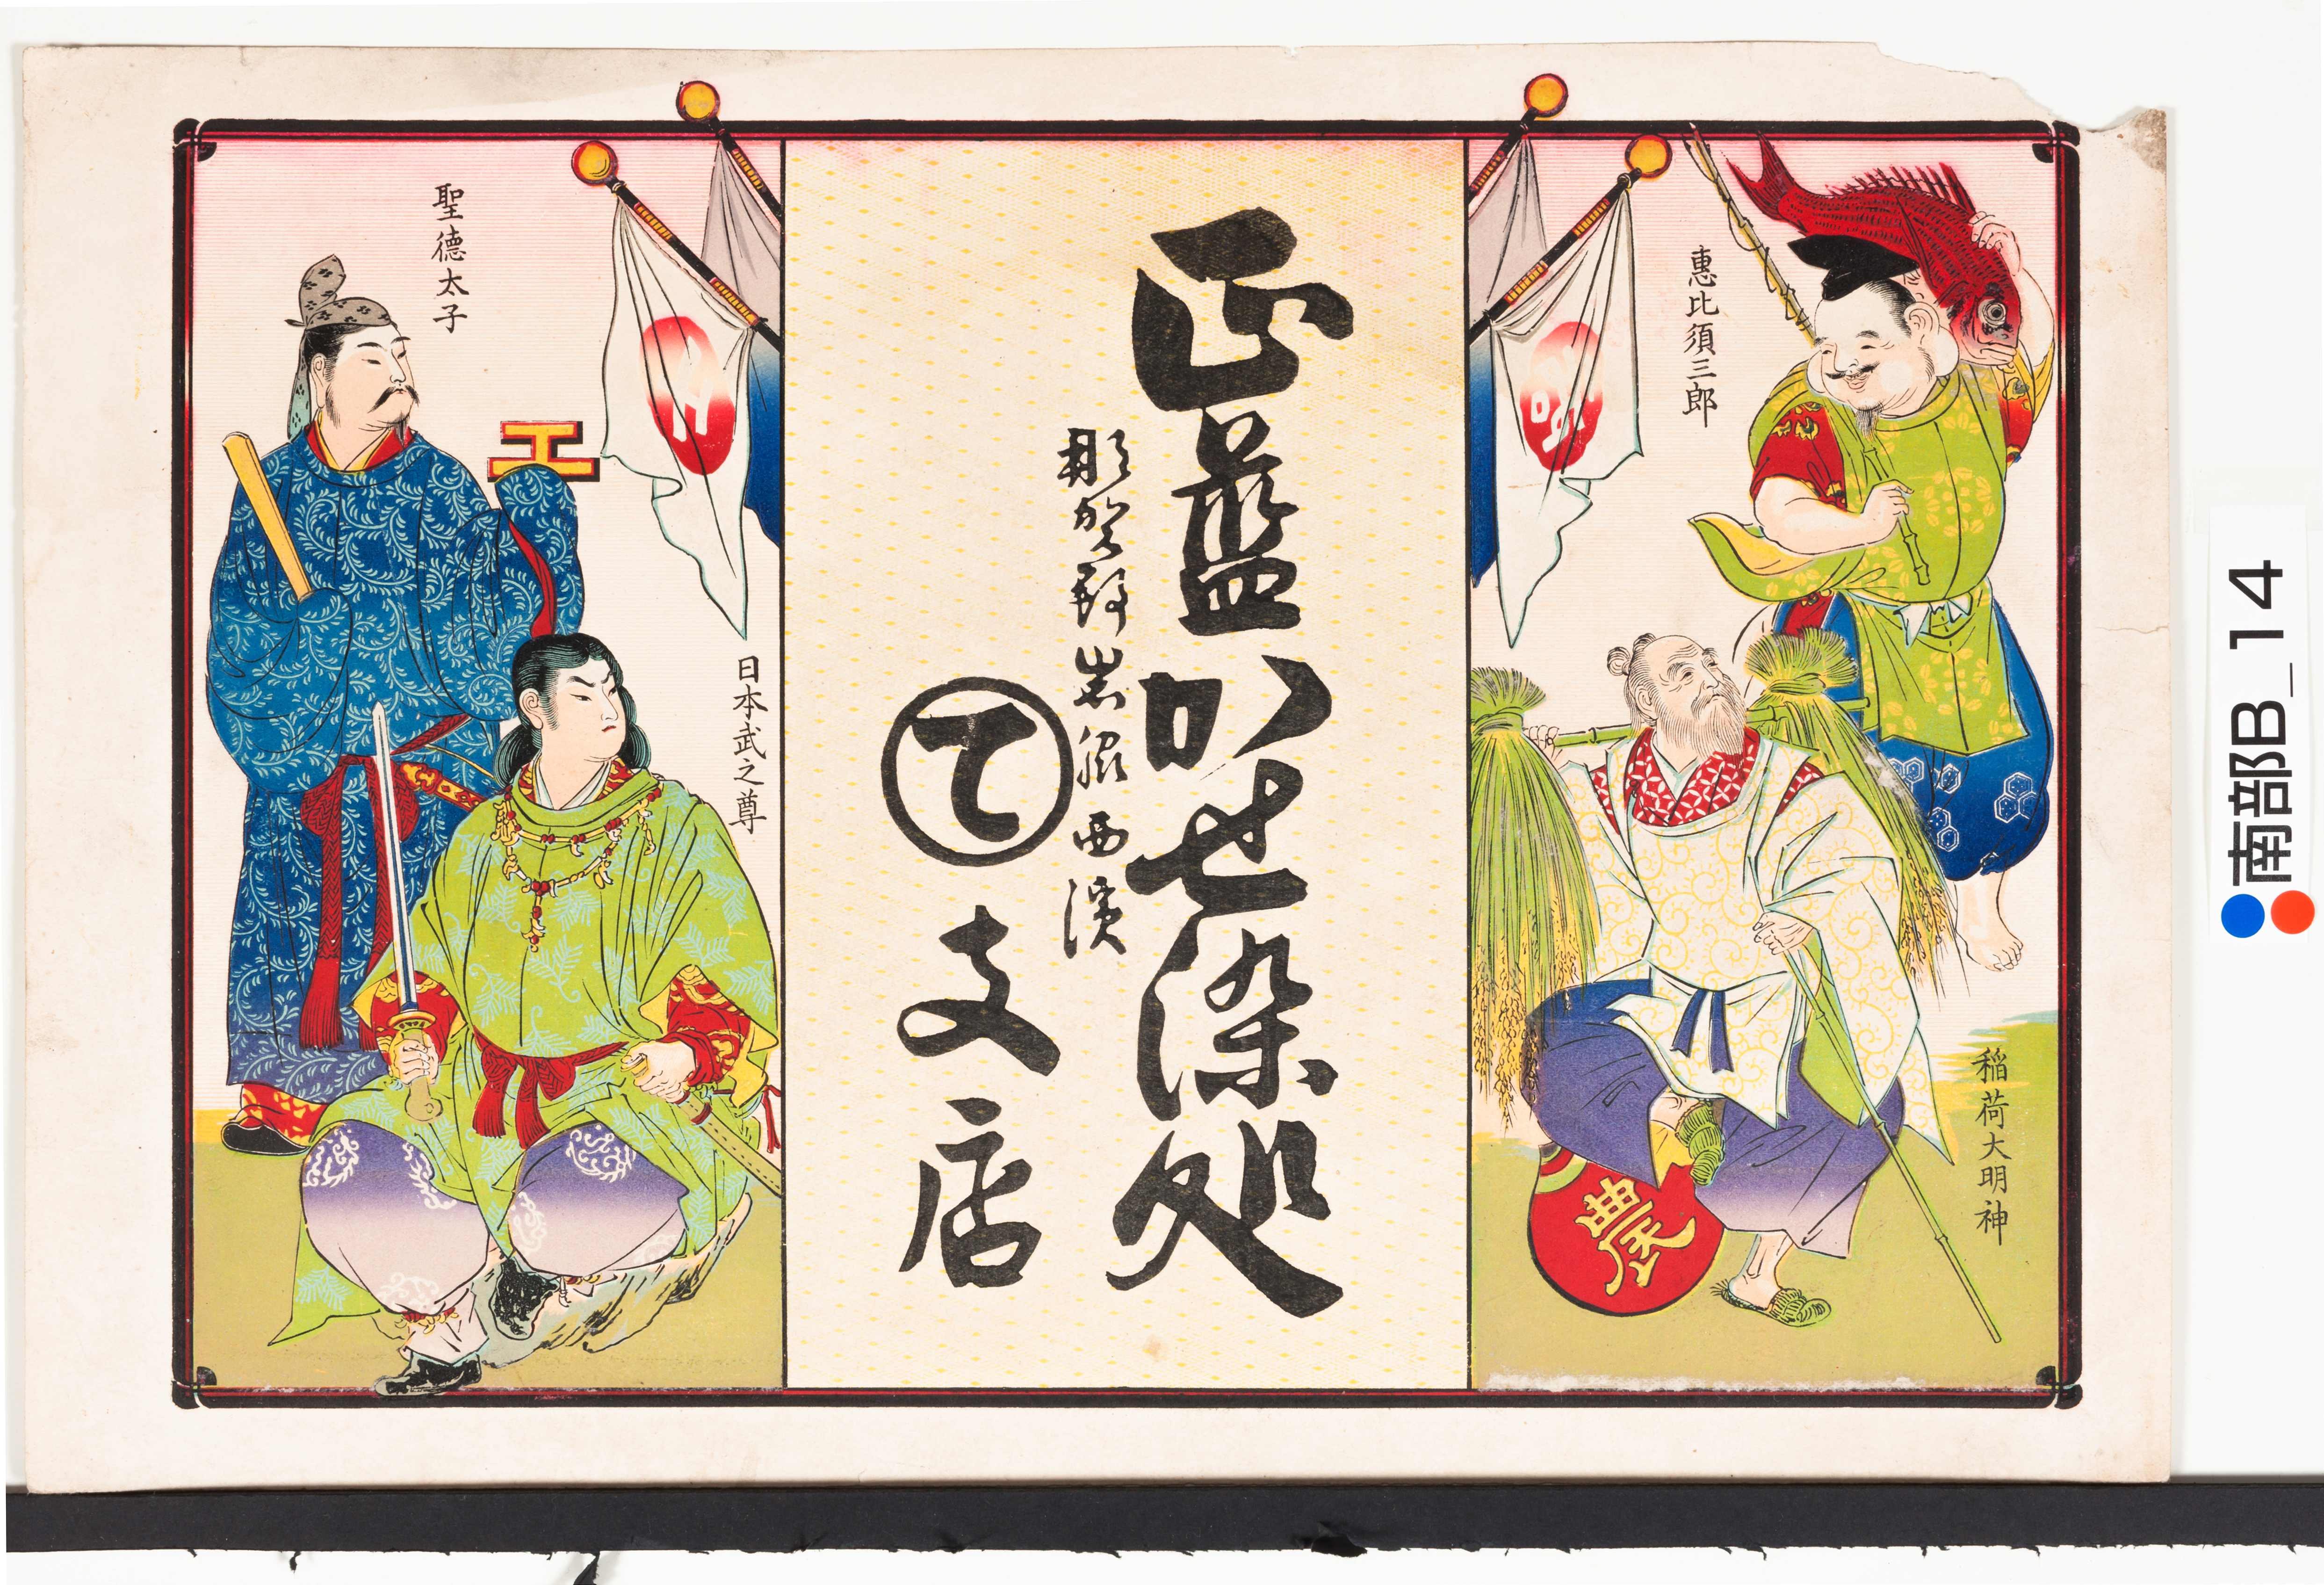 惠比須三郎
稲荷大明神
農
正藍かせ染処
那賀郡岩脇西濱
て
支店
日本武之尊
聖徳太子
工
南部B_14